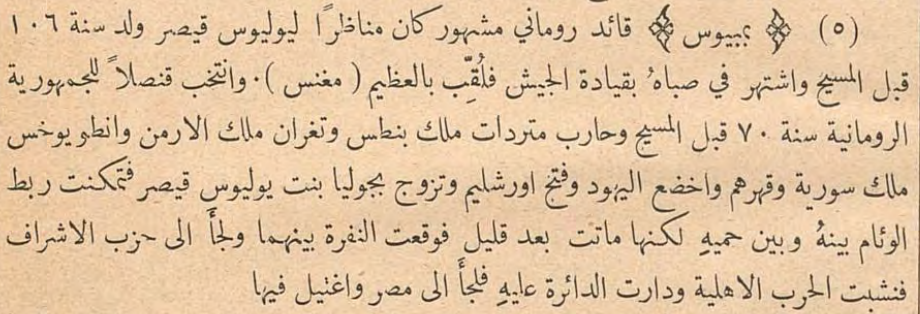 (٥) ﴿ بمبيوس ﴾ قائد روماني مشهور كان مناظرًا ليوليوس قيصر ولد سنة ١٠٦
قبل المسيح واشتهر في صباهُ بقيادة الجيش فلُقِّب بالعظيم ( مغنس ). وانتخب قنصلاً للجمهورية
الرومانية سنة ٧٠ قبل المسيح وحارب متردات ملك بنطس وتغران ملك الارمن وانطيوخس
ملك سورية وقهرهم واخضع اليهود وفتح اورشليم وتزوج بجوليا بنت يوليوس قيصر فتمكنت ربط
الوئام بينهُ وبين حميهِ لكنها ماتت بعد قليل فوقعت النفرة بينهما ولجأَ الى حزب الاشراف
فنشبت الحرب الاهلية ودارت الدائرة عليهِ فلجأَ الى مصر واغتيل فيها